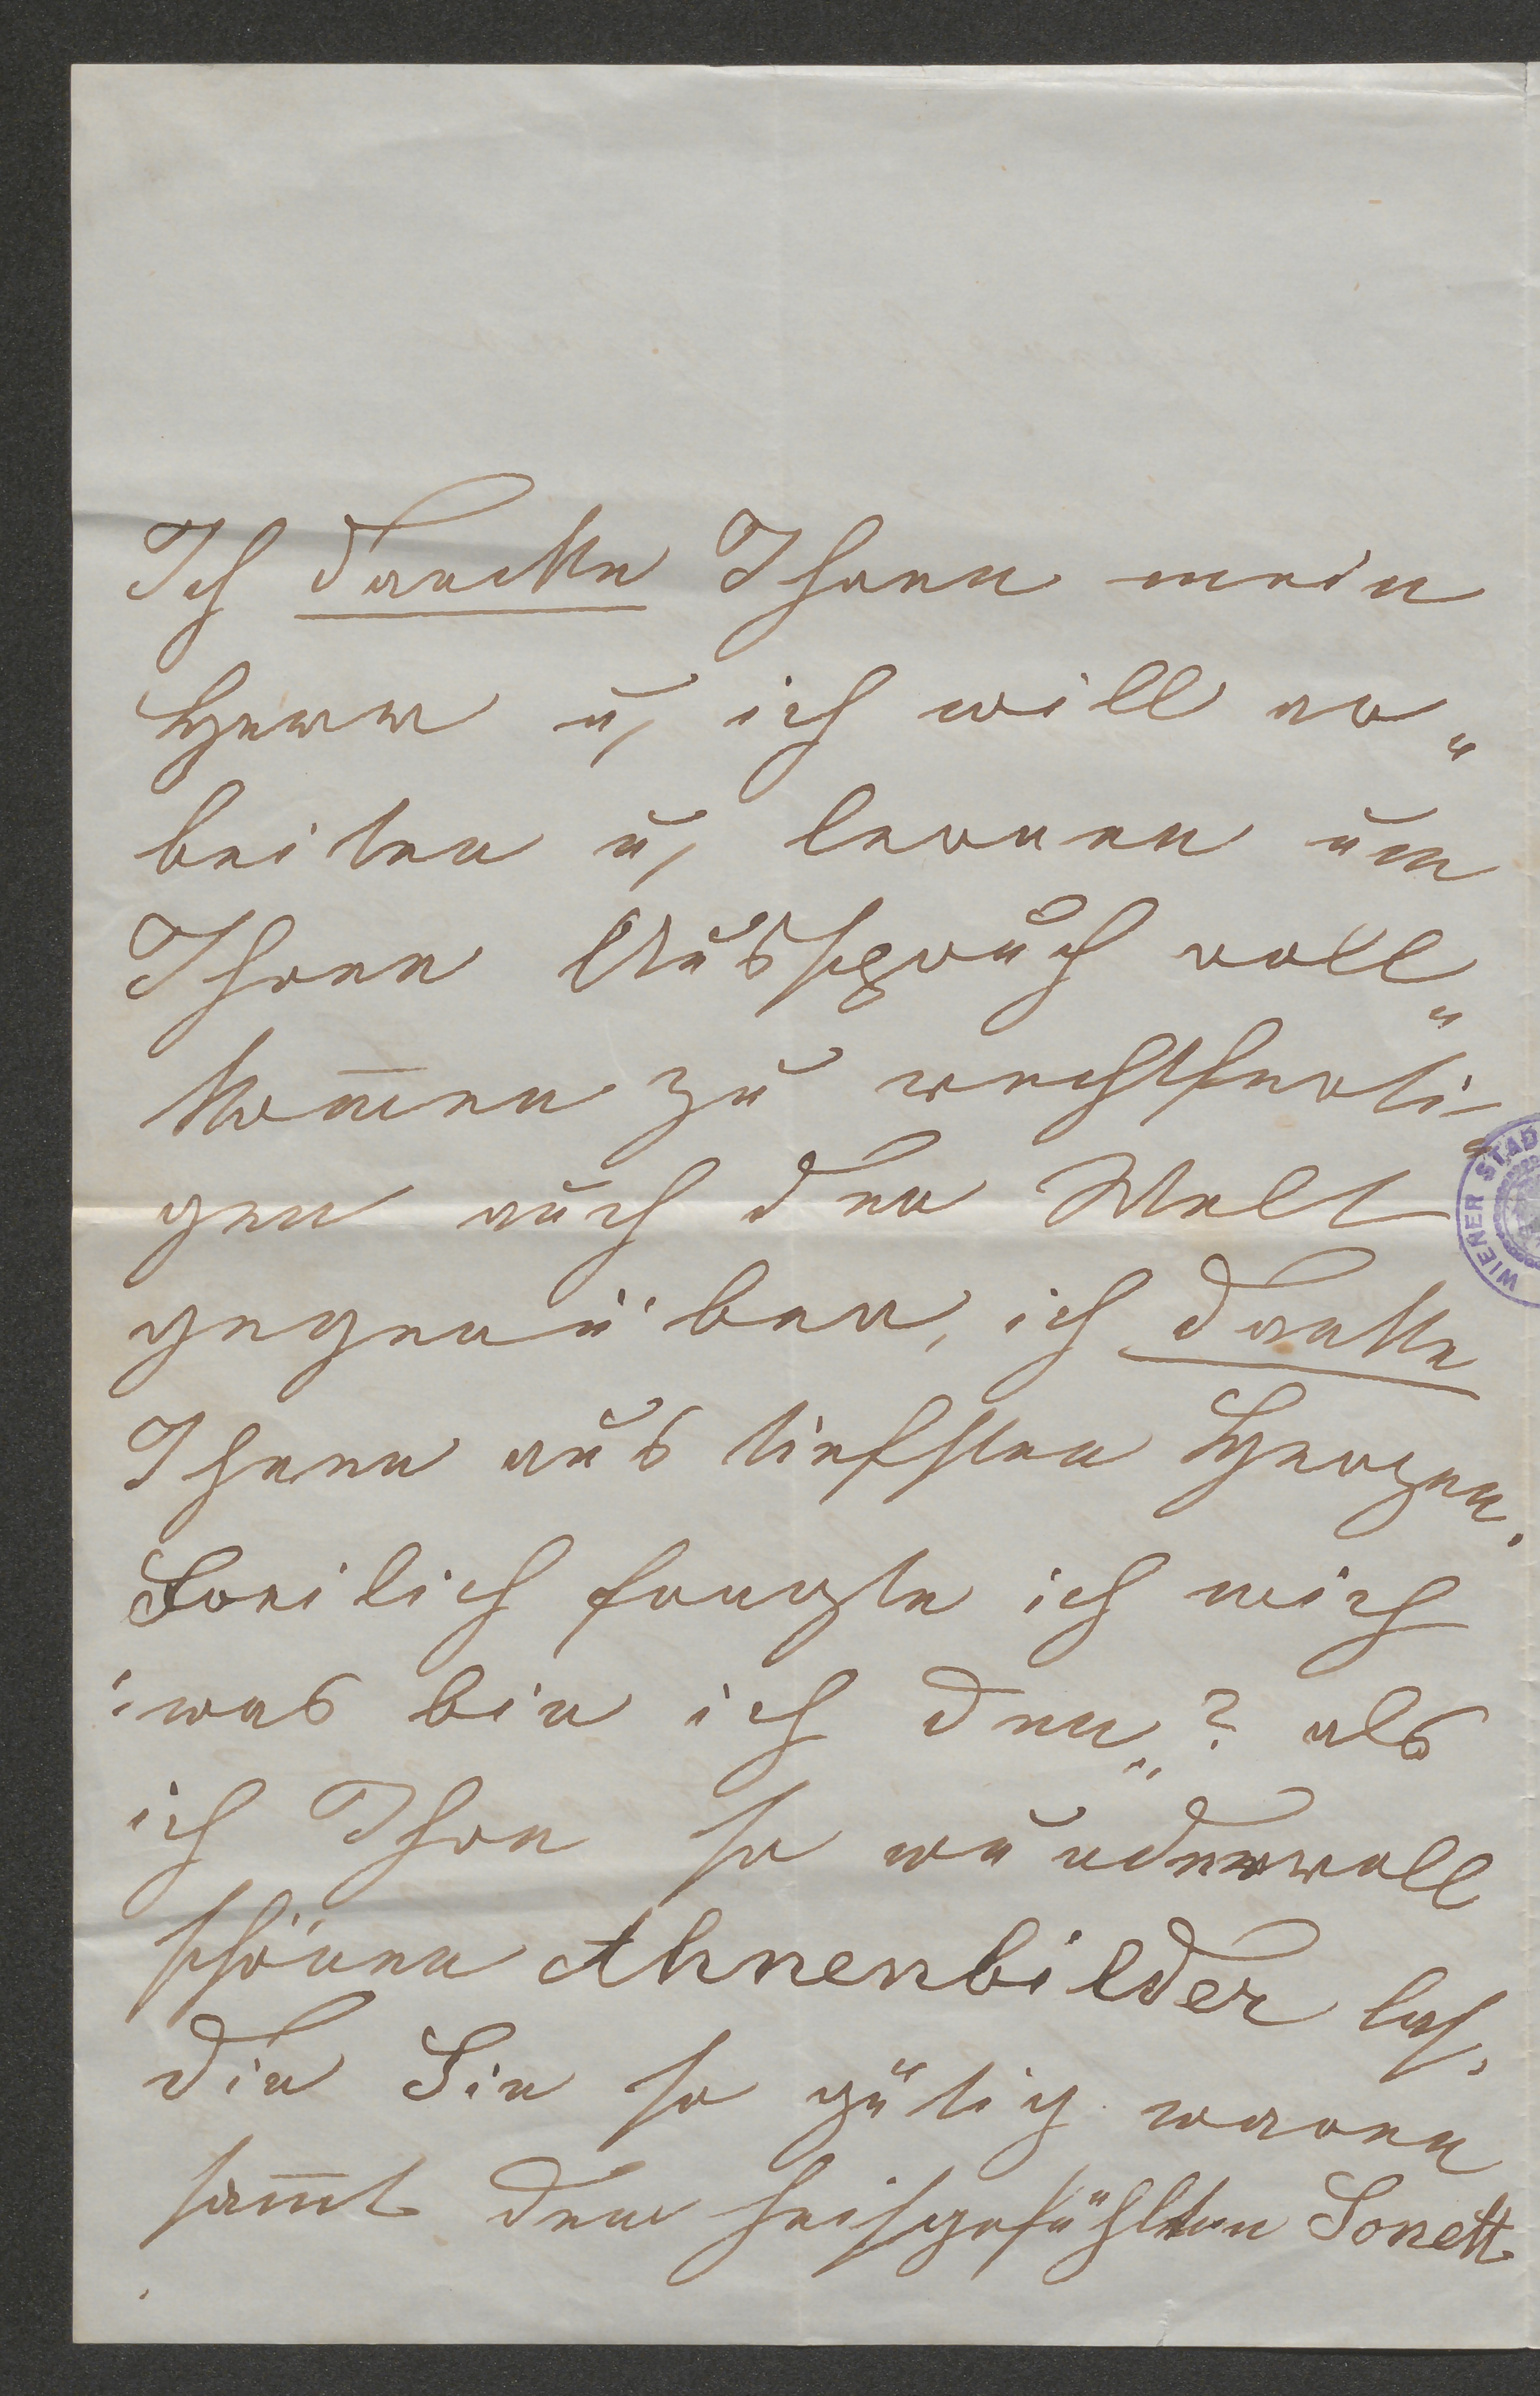 Ich danke Ihnen mein
Herr u, ich will ar„
beiten u, lernen um
Ihren Ausspruch voll„
kom̅en zu rechtferti„
gen auch der Welt
gegenüber, ich danke
Ihnen aus tiefsten Herzen.
Freilich fragte ich mich
„was bin ich den“? als
ich Ihre so wundervoll
schönen Ahnenbilder las,
die Sie so gütig waren
sam̅t dem heißgefühlten Sonett
WIENER STAD